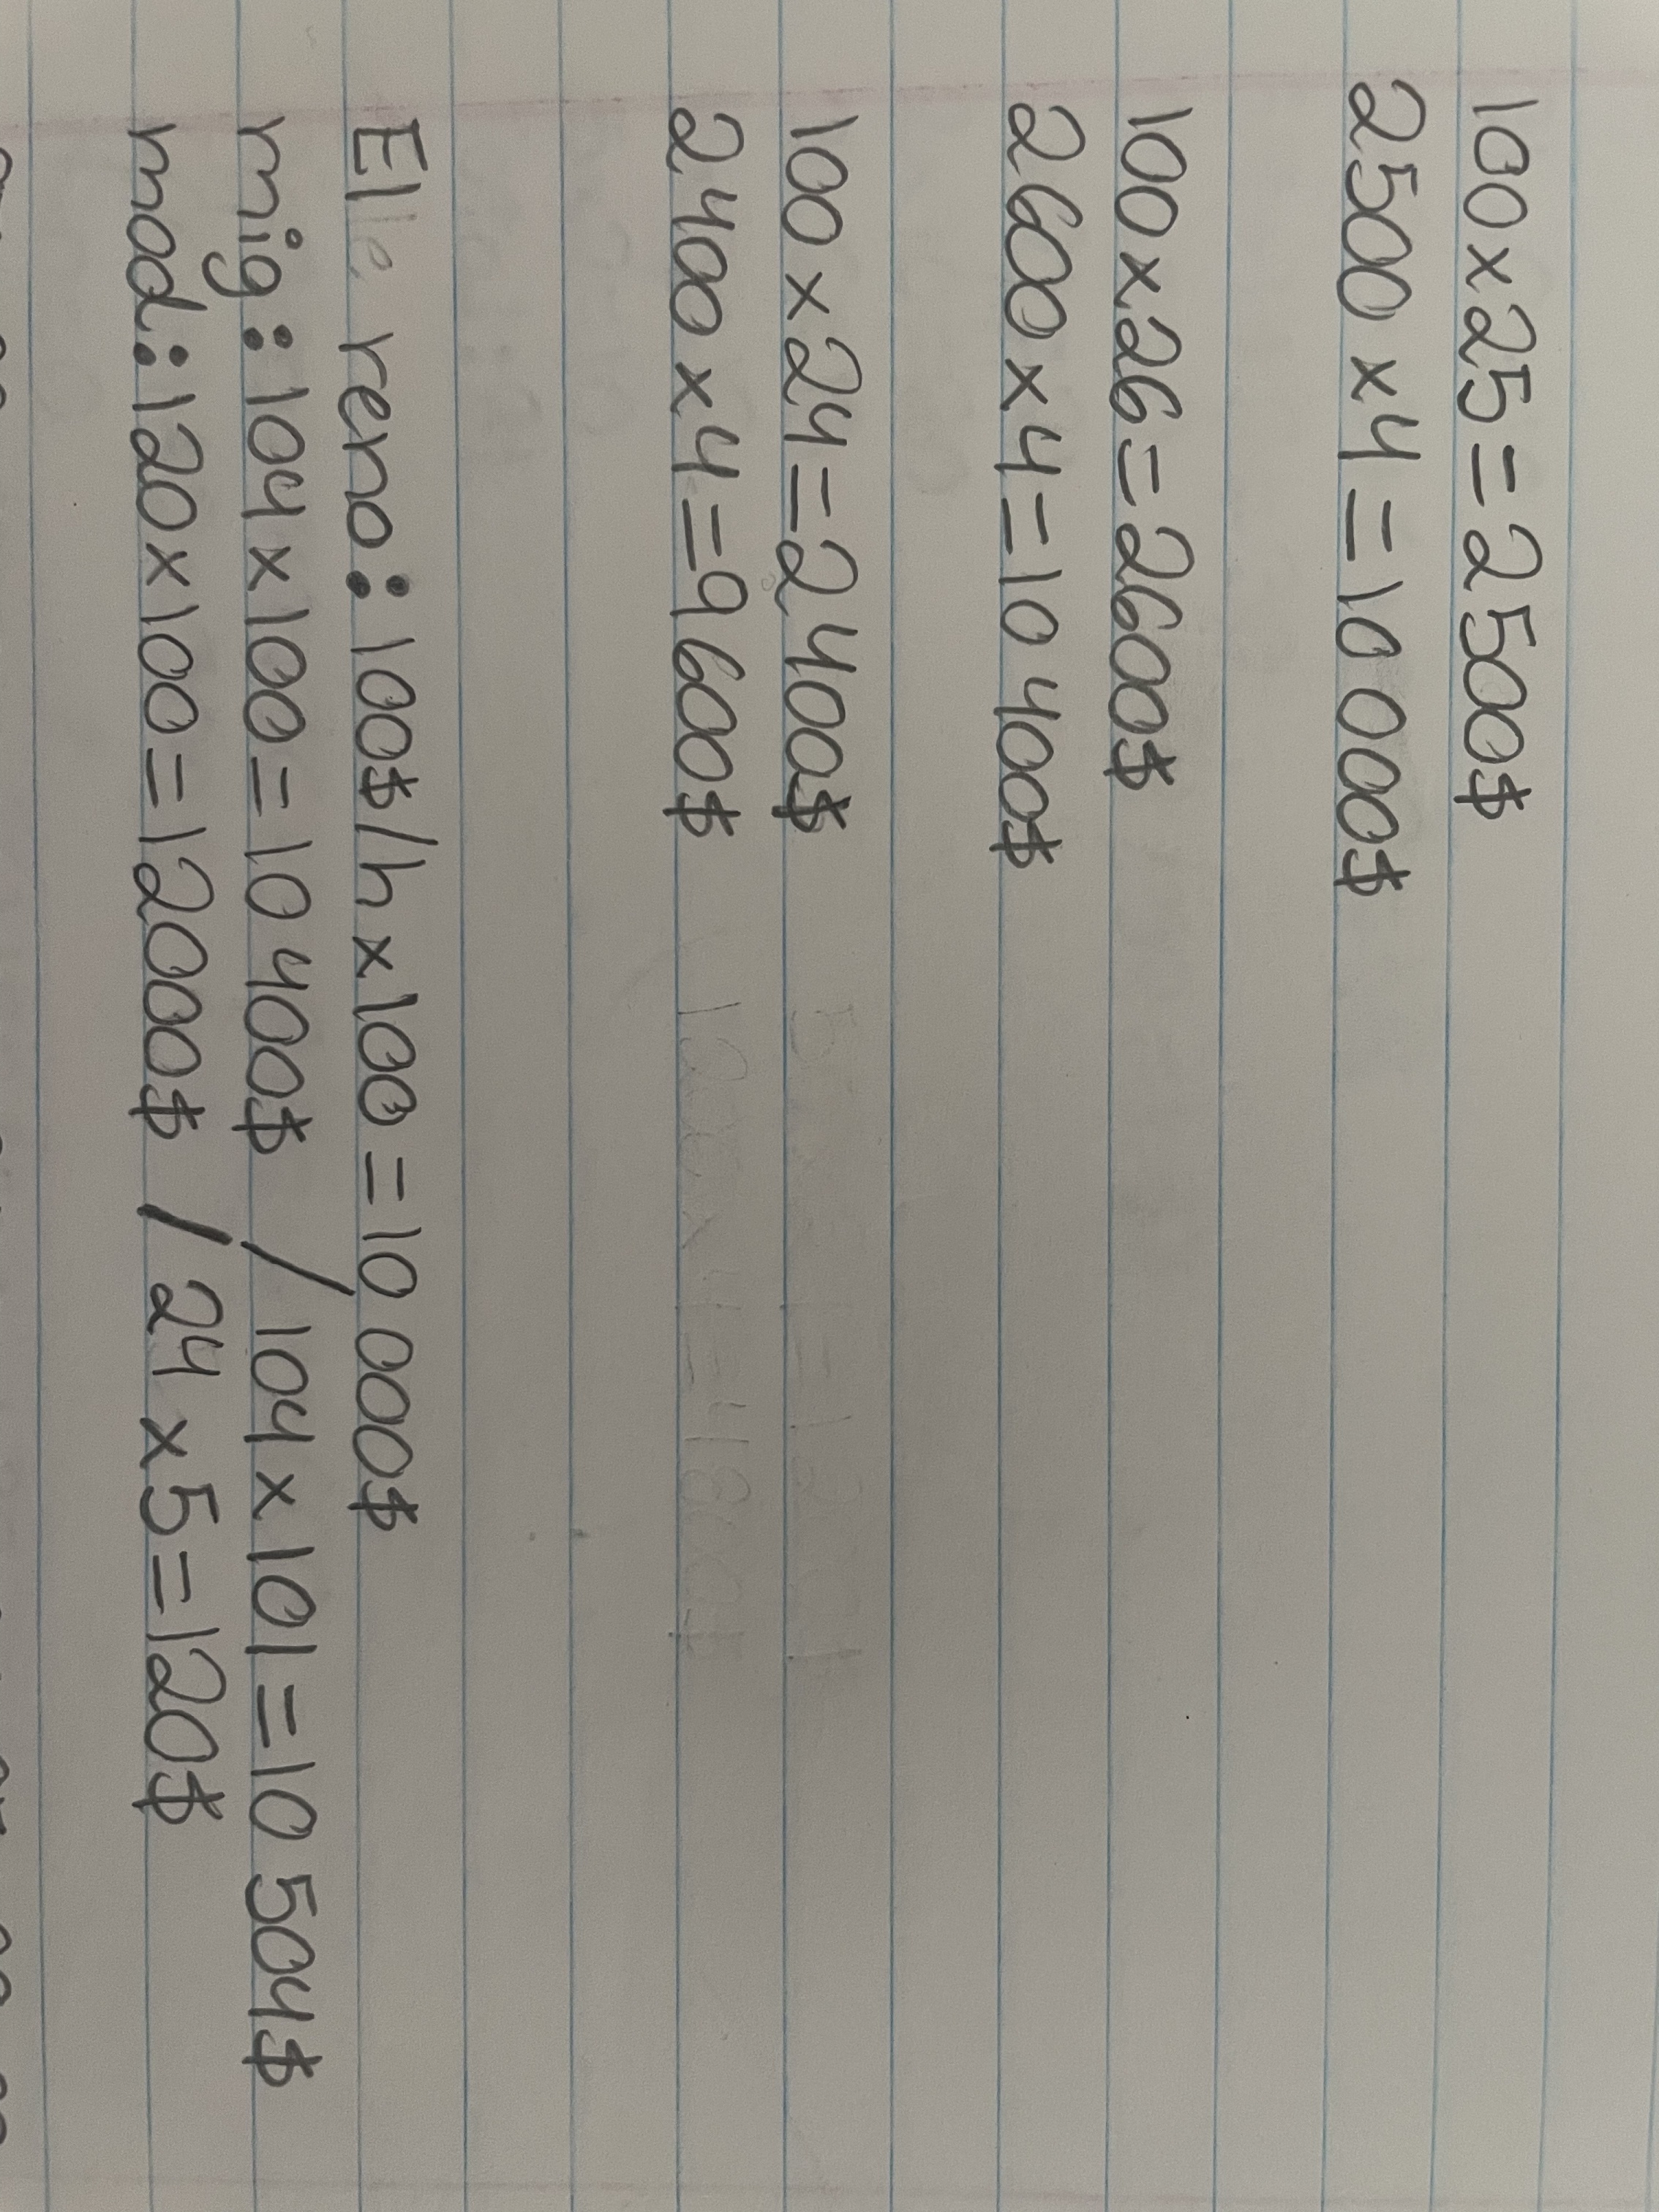 100 x 25 = 2 500$
2500 x 4 = 10 000$
100 x 26 = 2600$
2 600 x 4 = 10 400$
100 x 24 = 2 400$
2 400 x 4 = 9 600$
El reno : 100$/h x 100 = 10 000$
mig : 104 x 100 = 10 400$ / 104 x 101 = 10 504$
mad : 120 x 100 = 12000$ / 24 x 5 = 120$